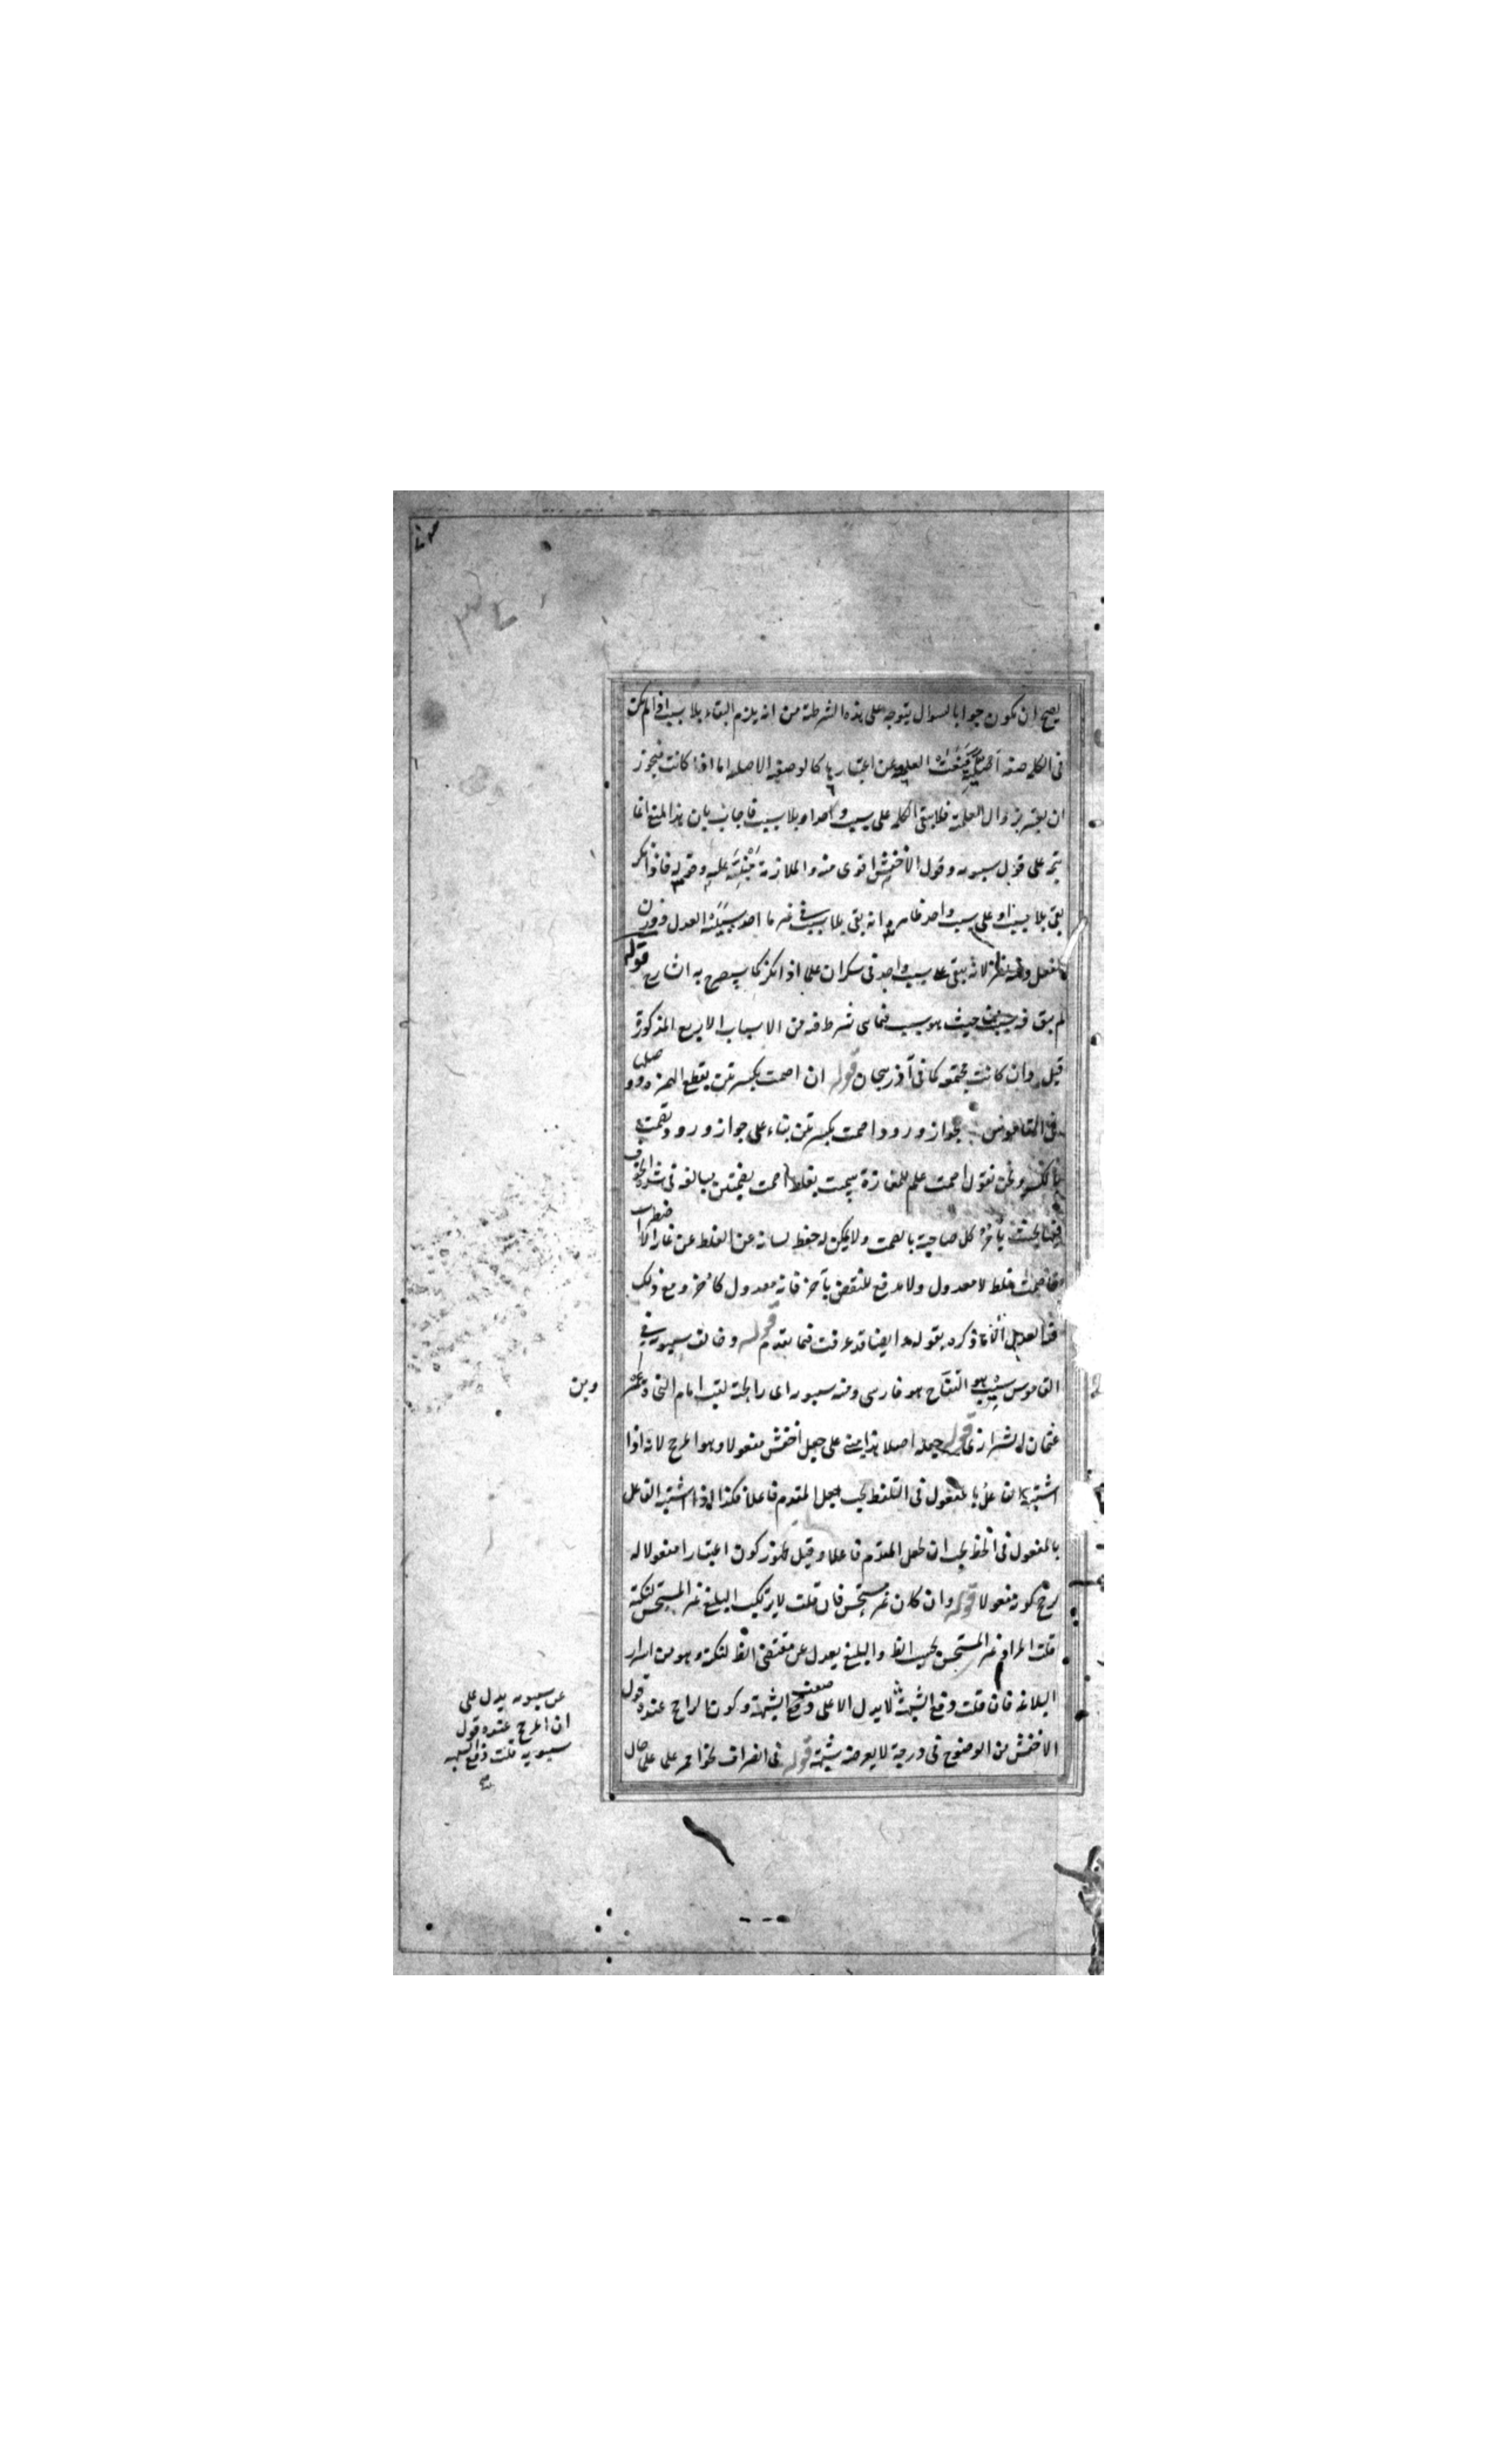 يصح ان يكون جوابا لسوال يتوجه على هذه الشرطية من انه يلزم البقاء بلا سبب اذا لم يكن
فى الكلمة صفة اصلية منعت العلمية عن اعتبارها كالوصفية الاصلية اما اذا كانت فيجوز
ان يعتبر بزوال العلمية فلا يبقى الكلمة على سبب واحد او بلا سبب فاجاب بان هذا المنع انما
يتم على قول سيبويه وقول الاخفش اقوى منه والملازمة مبنية عليه وقوله فاذا نكر
بقى بلا سبب او على سبب واحد ظاهره انه بقى بلا سبب فى غير ما احد سببيه العدل ووزن
الفعل وفيه نظر لانه يبقى على سبب واحد فى سكران علما اذا نكر كما يصرح به الشارح قوله
لم يبق فيه سبب من حيث هو سبب فيما هى شرط فيه من الاسباب الاربع المذكورة
قيل وان كانت مجتمعة كما فى آذربيجان قوله ان اصمت بكسرتين بقطع الهمزة ووصلها
فى القاموس بجواز ورود اصمت بكسرتين بناء على جواز ورود يصمت
بالكسر ونحن نقول اصمت علم للمفازة سميت بغلط اصمت بضمتين مبالغة فى شدة الخوف
فيها بحيث يأمر كل صاحبه بالصمت ولا يمكن له حفظ لسانه عن الغلط عن غاية الاضطراب
فاصمت غلط لا معدول ولا يدفع للنقض بآخر فانه معدول كأخر ومع ذلك
فالعدل الذى ذكره بقوله ايضا قد عرفت فيما تقدم قوله وخالف سيبويه فى
القاموس سيب هو التفاح هو فارسى ومنه سيبويه اى رائحته لقب امام النحو عمرو بن
عثمان الشيرازى قوله جعله اصلا هذا مبنى على جعل اخفش مفعولا وهو المرجح لانه اذا
اشتبه الفاعل بالمفعول فى التلفظ يجب جعل المقدم فاعلا فكذا اذا اشتبه الفاعل
بالمفعول فى الخط يجب ان يجعل المقدم فاعلا وقيل يجوز كون اعتبارا مفعولا له
يرجح كونه مفعولا قوله وان كان غير مستحسن فان قلت لا يرتكب البليغ غير المستحسن لنكتة
قلت المراد غير المستحسن بحسب الظ والبليغ يعدل عن مقتضى الظ لنكتة وهو من اسرار
البلاغة فان قلت دفع الشبهة لا يدل الا على ضعف الشبهة وكون الراجح عنده قول
الاخفش من الوضوح فى درجة لا يعرضه شبهة قوله فى انصراف نحو احمر على على حال
وبن
عن سيبويه يدل على
ان المرجح عنده قول
سيبويه قلت دفع الشبهة
صح